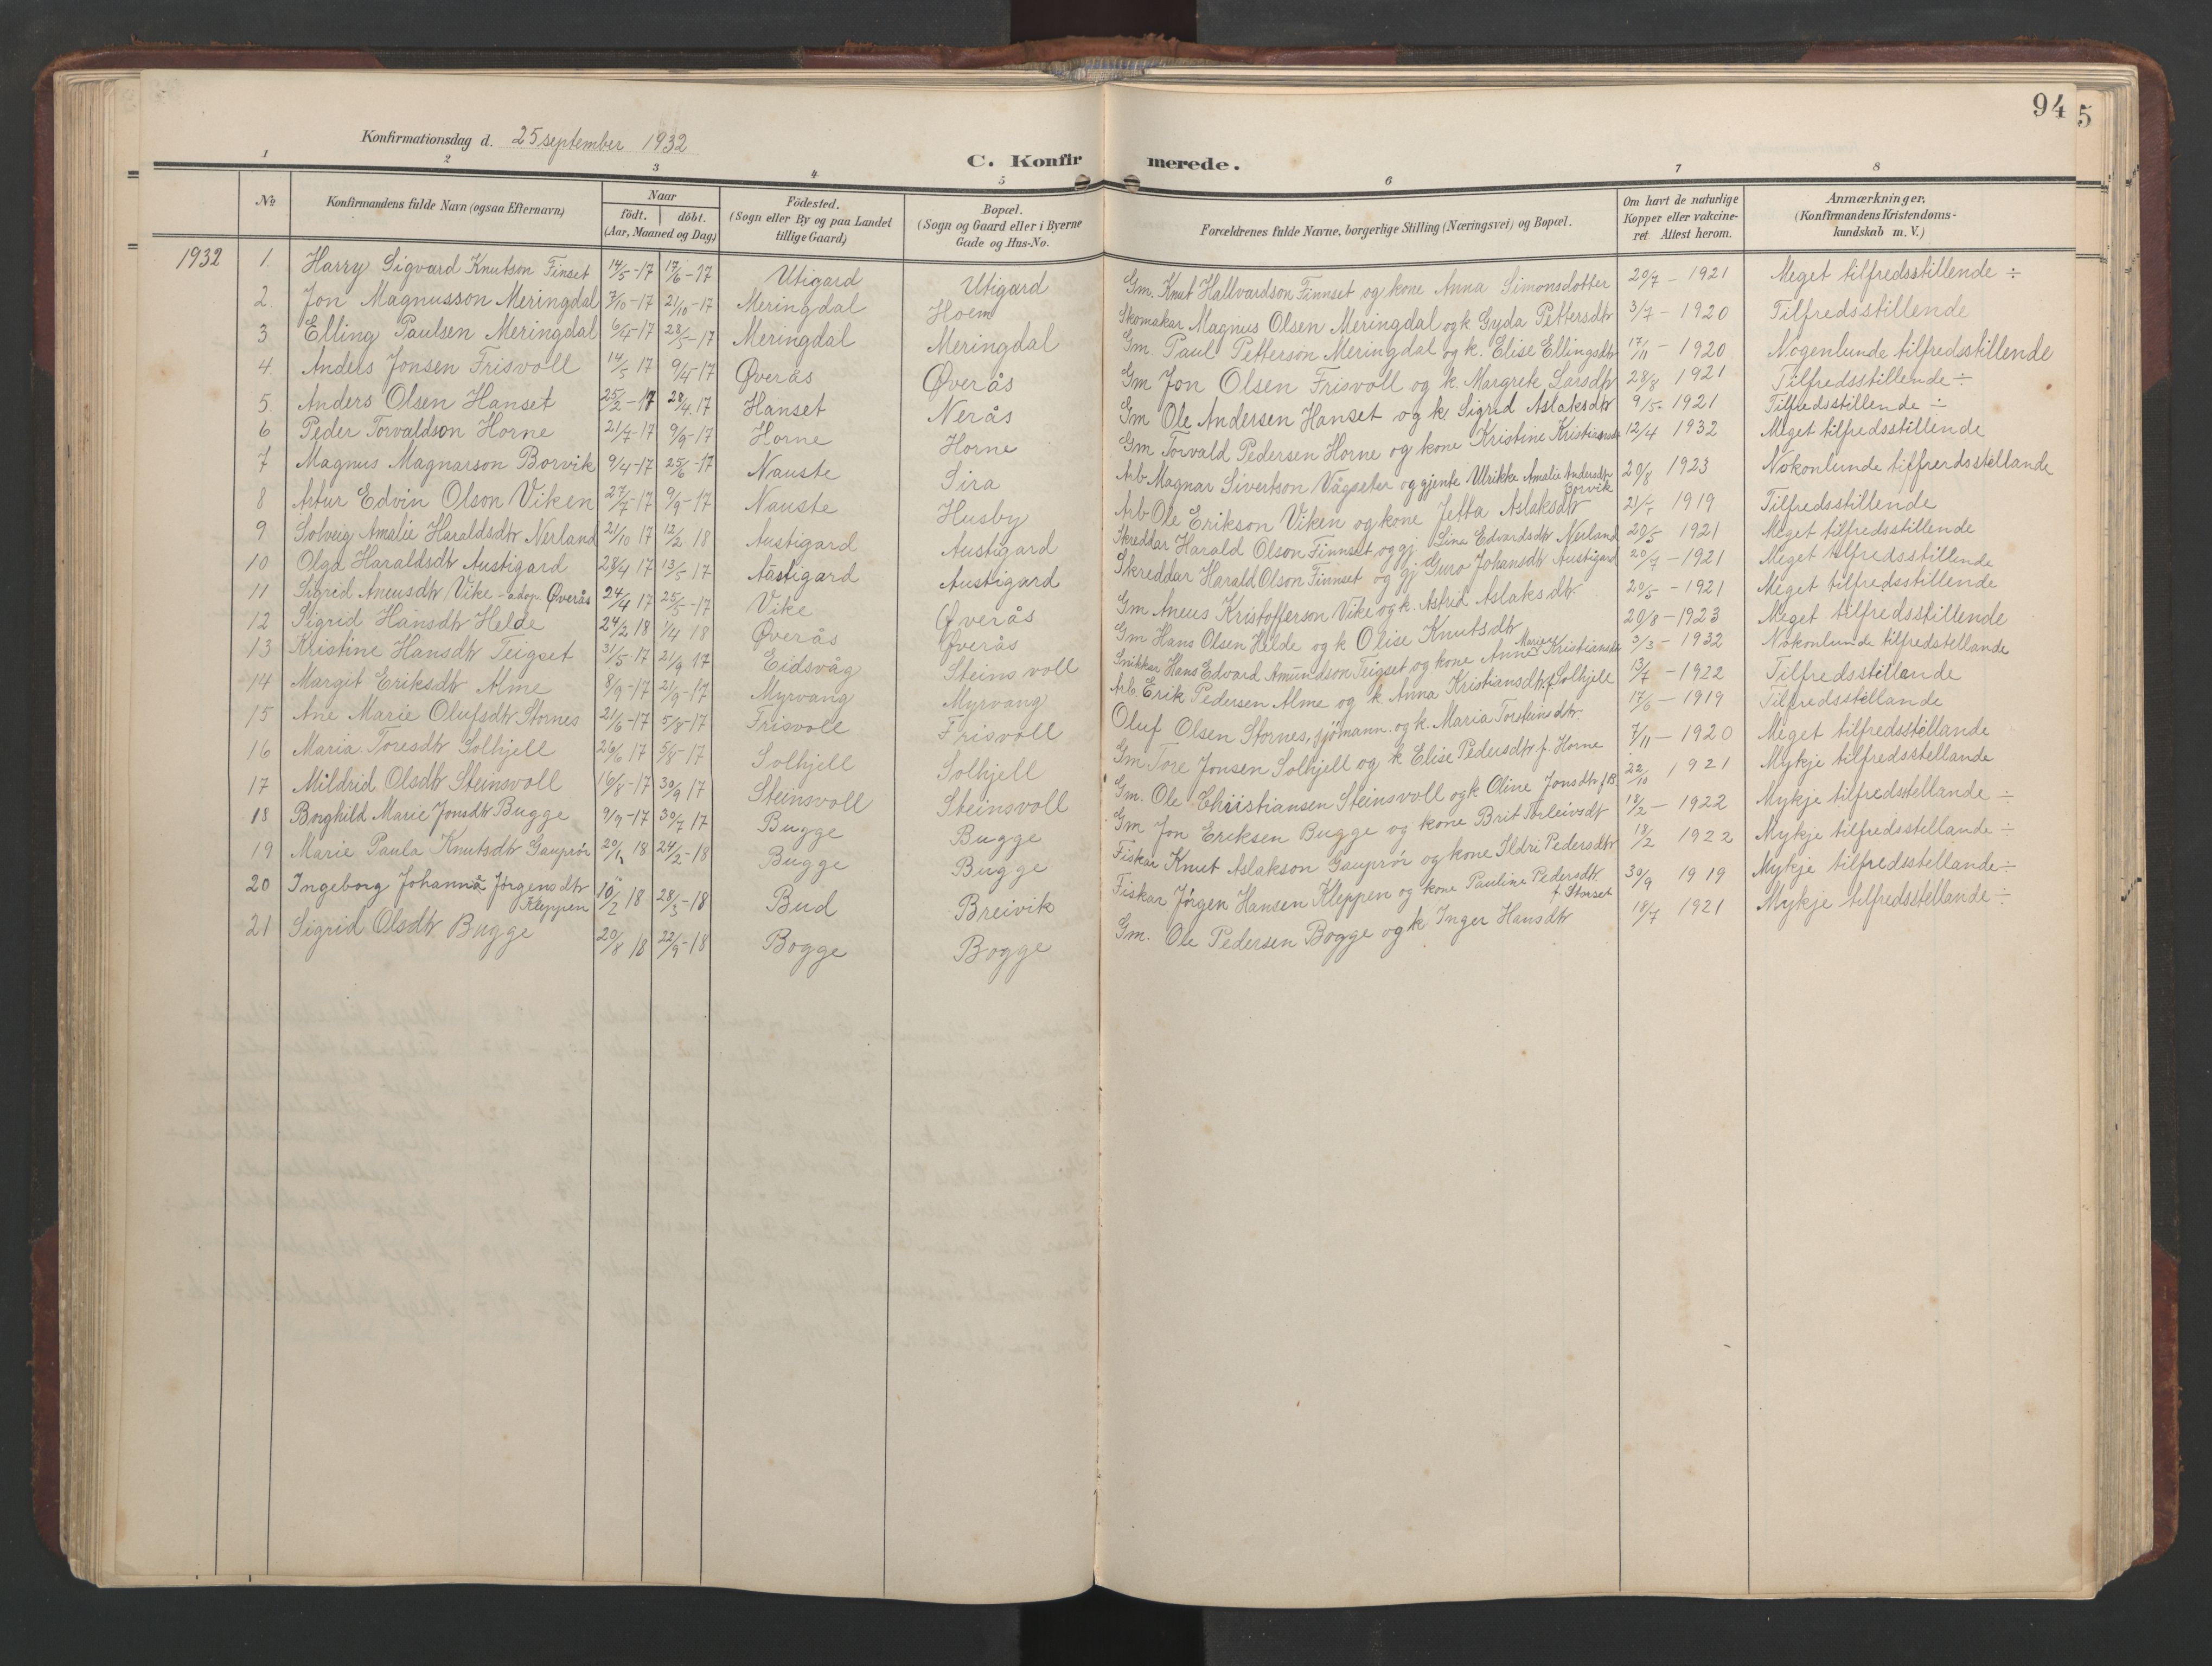 94 5
Konfirmationsdag d. 25 september 1932
C. Konfirmerede.
1 2 3 4 5 6 7 8
№ Konfirmandens fulde Navn (ogsaa Efternavn) Naar födt. döbt. (Aar, Maaned og Dag) Födested. (Sogn eller By og paa Landet tillige Gaard) Bopæl. (Sogn og Gaard eller i Byerne Gade og Hus-No. Forældrenes fulde Navne, borgerlige Stilling (Næringsvei) og Bopæl. Om havt de naturlige Kopper eller vakcineret Attest herom. Anmærkninger. (Konfirmandens Kristendomskundskab m. V.)
1932 1. Harry Sigvard Knutson Finset 14/5-17 17/6-17 Utigard Utigard Gm. Knut Hallvardson Finnset og kone Anna Simonsdotter 20/7 - 1921 Meget tilfredsstillende ÷
2. Jon Magnusson Meringdal 7/10-17 21/10-17 Meringdal Hoem Skomakar Magnus Olsen Meringdal og k Gyda Pettersdtr 3/7 - 1920 Tilfredsstillende
3 Elling Paulsen Meringdal 6/4-17 28/5-17 Meringdal Meringdal Gm. Paul Petterson Meringdal og k. Elise Ellingsdtr 17/11 - 1920 Nogenlunde tilfredsstillende
4. Anders Jonsen Frisvoll 14/5 17 9/4-17 Øverås Øverås Gm Jon Olsen Frisvoll og k. Margrete Larsdtr 28/8 1921 Tilfredsstillende ÷
5. Anders Olsen Hanset 25/2-17 28/4 17 Hanset Nerås Gm Ole Andersen Hanset og k. Sigrid Aslaksdtr 9/5- 1921 Tilfredsstillende ÷
6 Peder Torvaldson Horne 21/7-17 9/9-17 Horne Horne Gm Torvald Pedersen Horne og kone Kristine Kristiansdtr 12/4 1932 Meget tilfredsstillende
7 Magnus Magnarson Borvik 9/4-17 25/6-17 Nauste Sira Arb Magnar Sivertson Vågseter og gjente Ulrikke Amalie Andersdtr Borvik 20/8 1923 Nokonlunde tilfrerdsstellande
8 Artur Edvin Olson Viken 27/7-17 9/9-17 Nauste Husby Arb Ole Erikson Viken og kone Jetta Aslaksdtr 1919 Tilfredsstillende
9 Solveig Amalie Haraldsdtr Nerland 21/10 17 12/2 18 Austigard Austigard Skreddar Harald Olson Finnset og gj. Lina Edvardsdtr Nerland 20/5 1921 Meget tilfredsstillende
10 Olga Haraldsdtr Austigard 28/4 17 13/5-17 Austigard Austigard Skreddar Harald Olson Finnset og gj Guro Johansdtr Austigard 20/7-1921 Meget tilfredsstillende
11 Sigrid Aneusdtr Vike - adop. Øverås 24/4 17 25/5-17 Vike Øverås Gm Aneus Kristofferson Vike og k. Astrid Aslaksdtr. 20/5 - 1921 Meget tilfredsstillende
12 Sigrid Hansdtr Helde 24/2 18 1/4 18 Øverås Øverås Gm Hans Olsen Helde og k Olise Knutsdtr 20/8-1923 Meget tilfredsstillende
13 Kristine Hansdtr Teigset 31/5-17 21/9 17 Eidsvåg Steinsvoll Snikkar Hans Edvard Amundson Teigset og kone Anne Kristiansdtr 3/3 - 1932 Nokonlunde tilfredstellande
14 Margit Eriksdtr Alme 8/9-17 21/9-17 Myrvang Myrvang Arb. Erik Pedersen Alme og k. Anna Kristiansdtr f Solhjell 13/7 - 1922 Tilfredsstillande
15 Ane Marie Olufsdtr Stornes 21/6-17 5/8-17 Frisvoll Frisvoll Oluf Olsen Stornes, sjömann. og k. Maria Torsteinsdtr. 17/6 - 1919 Tilfredsstellande
16 Maria Toresdtr Solhjell 26/6 17 5/8-17 Solhjell Solhjell Gm Tore Jonsen Solhjell og k Elise Pedersdtr f. Horne 7/11 - 1920 Meget tilfredsstellande
17 Mildrid Olsdtr Steinsvoll 16/8-17 30/9 17 Steinsvoll Steinsvoll Gm. Ole Christiansen Steinsvoll og k Oline Jonsdtr f B. 22/10 1921 Mykje tilfredsstellande
18 Borghild Marie Jonsdtr Bugge 9/9-17 30/7 17 Bugge Bugge Gm Jon Eriksen Bugge og kone Brit Torleivsdt 18/2 - 1922 Mykje tilfredsstellande ÷
19 Marie Paula Knutsdtr Gauprør 18 24/2-18 Bugge Bugge Fiskar Knut Aslakson Gauprör og kone Ildri Pedersdtr 18/2 1922 Mykje tilfredsstellande ÷
20 Ingeborg Johanna Jørgensdtr Kleppen 10/2 18 28/3-18 Bud Breivik Fiskar Jörgen Hansen Kleppen og kone Pauline Pedersdtr. f. Storset 30/9 1919 Mykje tilfredsstellande ÷
21 Sigrid Olsdtr Bugge 20/8 18 22/9-18 Bogge Bogge Gm. Ole Pedersen Bogge og k Inger Hansdtr 18/7 1921 Mykje tilfredsstellande ÷